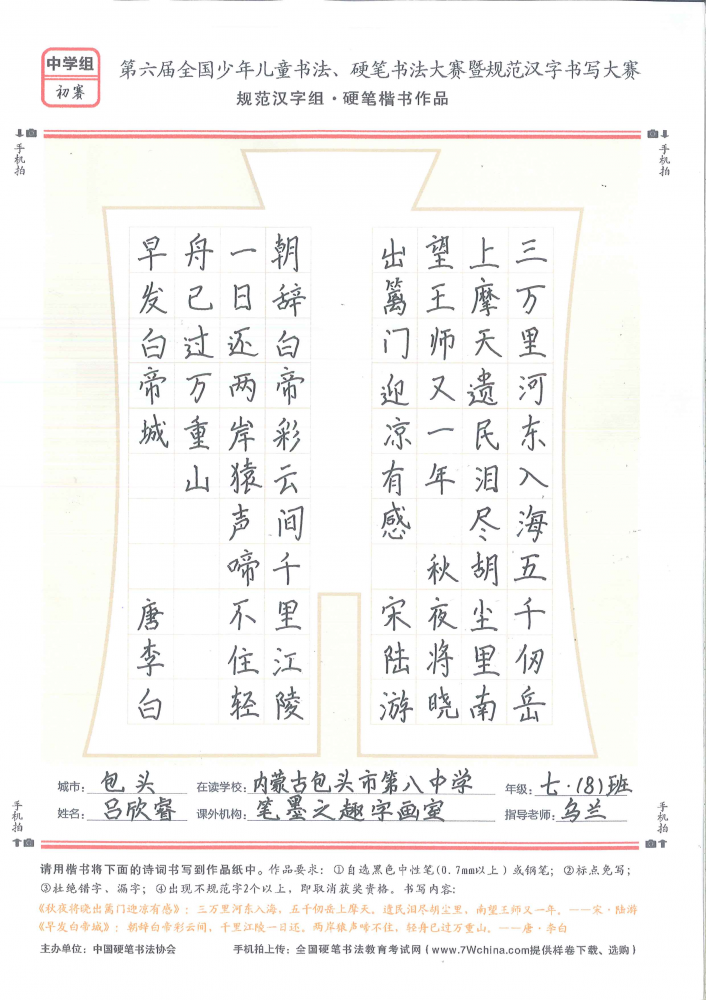 中学组
初赛
第六届全国少年儿童书法、硬笔书法大赛暨规范汉字书写大赛
规范汉字组·硬笔楷书作品
手机拍
手机拍
三万里河东入海五千仞岳
上摩天遗民泪尽胡尘里南
望王师又一年 秋夜将晓
出篱门迎凉有感 宋陆游
朝辞白帝彩云间千里江陵
一日还两岸猿声啼不住轻
舟已过万重山
早发白帝城 唐李白
城市：包头 在读学校：内蒙古包头市第八中学 年级：七·(8)班
姓名：吕欣睿 课外机构：笔墨之趣字画室 指导老师：乌兰
手机拍
手机拍
请用楷书将下面的诗词书写到作品纸中。作品要求：①自选黑色中性笔(0.7mm以上）或钢笔；②标点免写；
③杜绝错字、漏字；④出现不规范字2个以上，即取消获奖资格。书写内容：
《秋夜将晓出篱门迎凉有感》：三万里河东入海，五千仞岳上摩天。遗民泪尽胡尘里，南望王师又一年。——宋·陆游
《早发白帝城》：朝辞白帝彩云间，千里江陵一日还。两岸猿声啼不住，轻舟已过万重山。——唐·李白
主办单位：中国硬笔书法协会 手机拍上传：全国硬笔书法教育考试网（www.7Wchina.com提供样卷下载、选购）